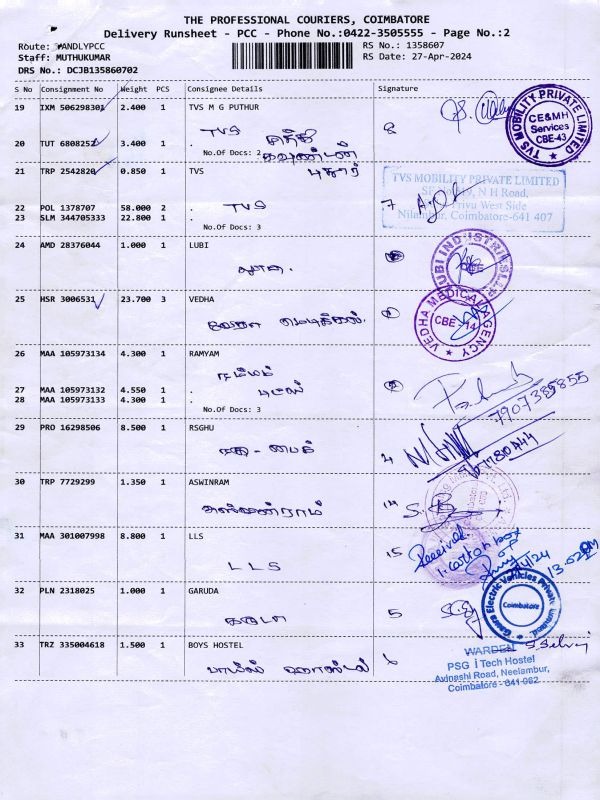 THE PROFESSIONAL COURIERS, COIMBATORE
Delivery Runsheet - PCC - Phone No.:0422-3505555 - Page No.:2
Route: ANDLYPCC
Staff: MUTHUKUMAR
DRS No.: DCJB135860702
RS No.: 1358607
RS Date: 27-Apr-2024
S No Consignment No Weight PCS Consignee Details Signature
19 IXM 506298301 2.400 1 TVS M G PUTHUR
TVS
20 TUT 6808252 3.400 1 .
No.Of Docs: 2
TVS MOBILITY PRIVATE LIMITED
CE&MH
Services
CBE-43
21 TRP 2542820 0.850 1 TVS
22 POL 1378707 58.000 2 . TVS 7
23 SLM 344705333 22.800 1 .
No.Of Docs: 3
TVS MOBILITY PRIVATE LIMITED
N H Road,
Privu West Side
Nilambur, Coimbatore-641 407
24 AMD 28376044 1.000 1 LUBI
லூபி
LUBI INDUSTRIES LLP
25 HSR 3006531 23.700 3 VEDHA
வேதா மெடிக்கல்
VEDHA MEDICAL AGENCY
CBE-14
26 MAA 105973134 4.300 1 RAMYAM
27 MAA 105973132 4.550 1 .
28 MAA 105973133 4.300 1 .
No.Of Docs: 3
7907385855
29 PRO 16298506 8.500 1 RSGHU
30 TRP 7729299 1.350 1 ASWINRAM
அஸ்வின்ராம் 14
31 MAA 301007998 8.800 1 LLS
LLS 15
Received
1. carton box
13.02PM
32 PLN 2318025 1.000 1 GARUDA
கருடா 5
Electric Vehicles Private Limited
Coimbatore
33 TRZ 335004618 1.500 1 BOYS HOSTEL
பாய்ஸ் ஹாஸ்டல் 6
S. Selvi
WARDEN
PSG iTech Hostel
Avinashi Road, Neelambur,
Coimbatore - 641 062